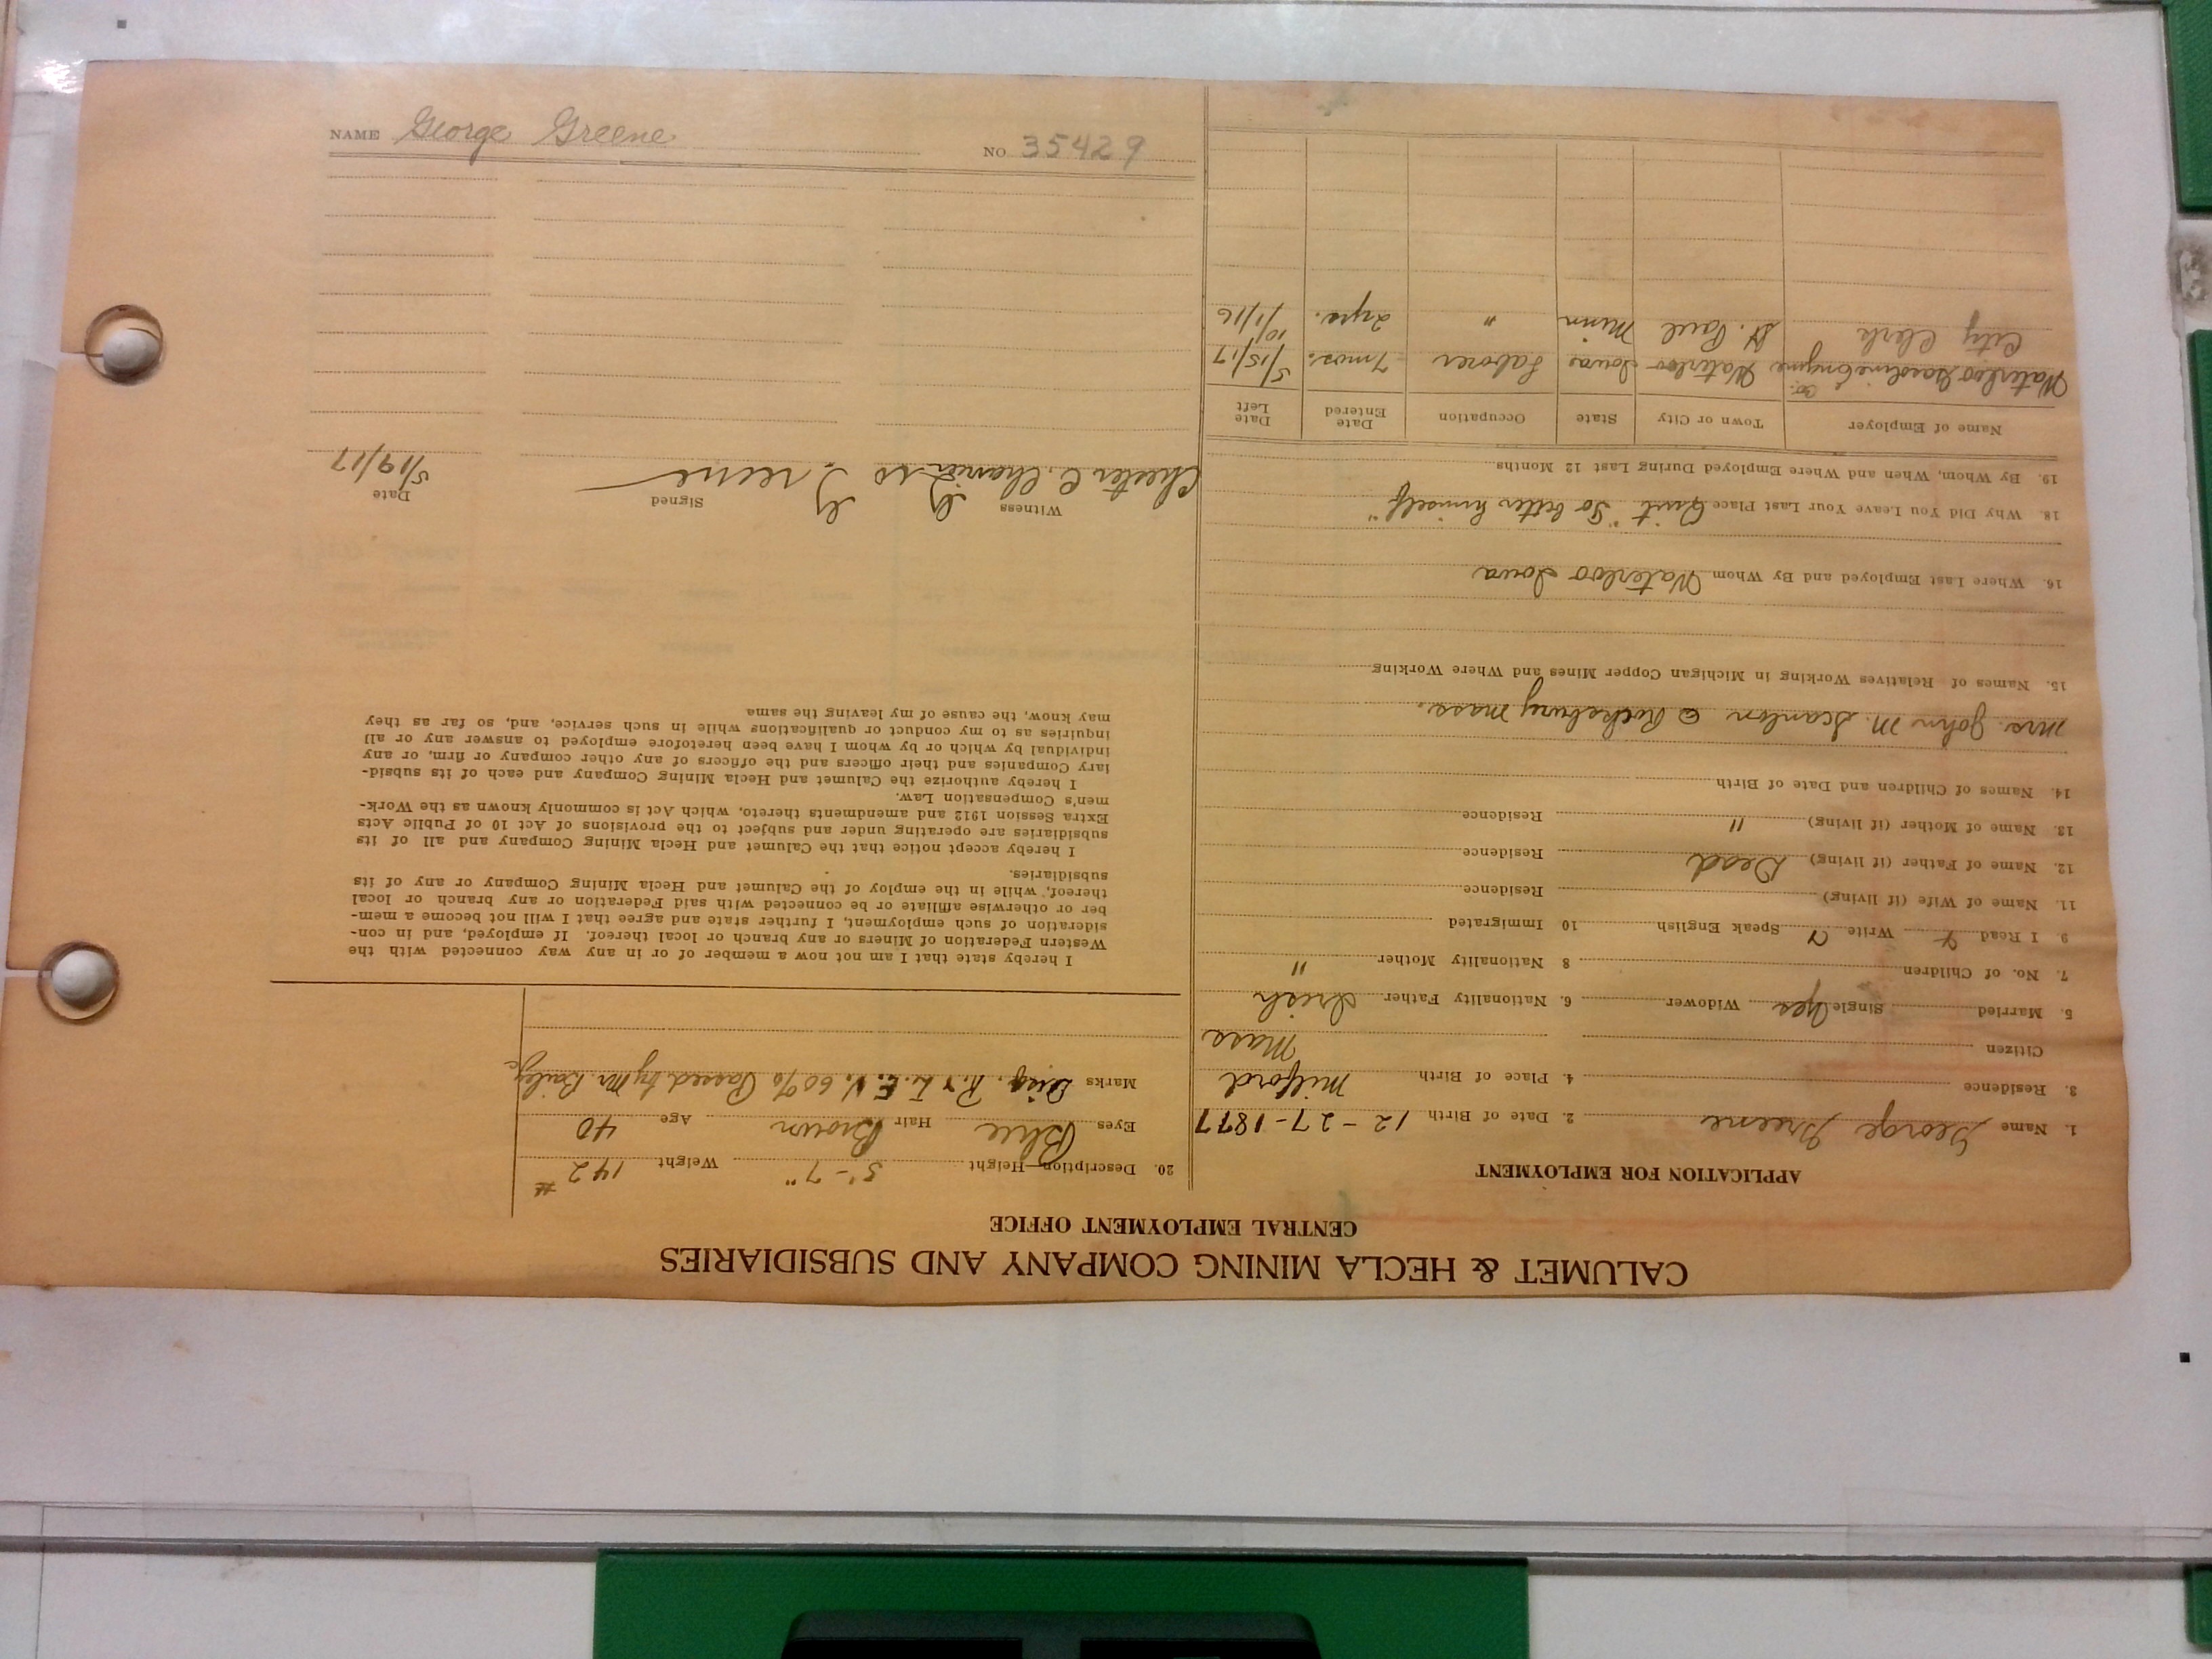 CALUMET & HECLA MINING COMPANY AND SUBSIDIARIES
CENTRAL EMPLOYMENT OFFICE
APPLICATION FOR EMPLOYMENT
1. Name George Greene 2. Date of Birth 12-27-1877
3. Residence 4. Place of Birth Milford
Citizen Mass
5. Married Single Yes Widower 6. Nationality Father Irish
7. No. of Children 8 Nationality Mother "
9. I Read Y Write Speak English 10 Immigrated
11. Name of Wife (if living) Residence
12. Name of Father (if living) Dead Residence
13. Name of Mother (if living) " Residence
14. Names of Children and Date of Birth
Mrs. John M. Scanlon Rocksbury Mass.
15. Names of Relatives Working in Michigan Copper Mines and Where Working
16. Where Last Employed and By Whom Waterloo Iowa
18. Why Did You Leave Your Last Place Quit "To better himself"
19. By Whom, When and Where Employed During Last 12 Months
Name of Employer Town or City State Occupation Date Entered Date Left
Waterloo Gasoline Engine Co. Waterloo Iowa Laborer 7 mos. 5/15/17
City Clerk St. Paul Minn " 2 yrs. 10/1/16
20. Description—Height 5'-7" Weight 142 #
Eyes Blue Hair Brown Age 40
Marks R. & L. E. V. 60% Passed by Mr. Bailey
I hereby state that I am not now a member of or in any way connected with the
Western Federation of Miners or any branch or local thereof. If employed, and in con-
sideration of such employment, I further state and agree that I will not become a mem-
ber or otherwise affiliate or be connected with said Federation or any branch or local
thereof, while in the employ of the Calumet and Hecla Mining Company or any of its
subsidiaries.
I hereby accept notice that the Calumet and Hecla Mining Company and all of its
subsidiaries are operating under and subject to the provisions of Act 10 of Public Acts
Extra Session 1912 and amendments thereto, which Act is commonly known as the Work-
men's Compensation Law.
I hereby authorize the Calumet and Hecla Mining Company and each of its subsid-
iary Companies and their officers and the officers of any other company or firm, or any
individual by which or by whom I have been heretofore employed to answer any or all
inquiries as to my conduct or qualifications while in such service, and, so far as they
may know, the cause of my leaving the same
Witness Signed Date
Chester C. Greene 5/19/17
NAME George Greene NO 35429